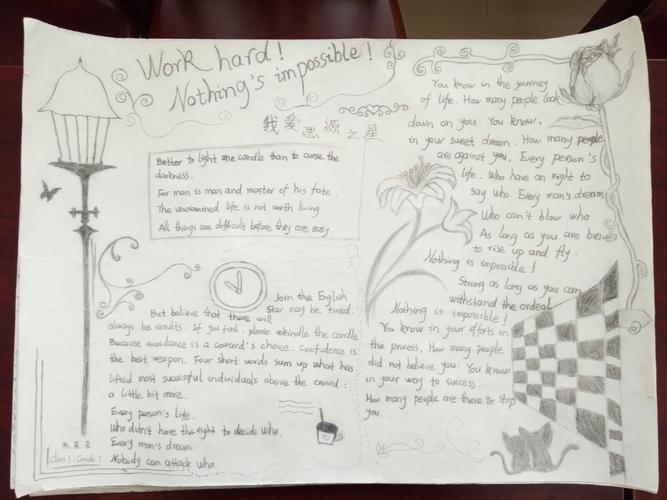 Work hard!
Nothing's impossible!
我爱思源之星
Better to light one candle than to curse the
darkness.
For man is man and master of his fate.
The unexamined life is not worth living.
All things are difficult before they are easy.
Join the English
Star may be tired.
But believe that there will
always be results. If you fail, please rekindle the candle
Because avoidance is a coward's choice. Confidence is
the best weapon. Four short words sum up what has
lifted most successful individuals above the crowd:
a little bit more.
Every person's life.
Who didn't have the right to decide who.
Every man's dream.
Nobody can attack who.
Class 1, Grade 7
You know in the journey
of life. How many people look
down on you You know.
in your sweet dream. How many people
are against you. Every person's
life. Who have an right to
say who. Every man's dream
Who can't blow who
As long as you are brave
to rise up and fly.
Nothing is impossible!
Strong as long as you can
withstand the ordeal
Nothing is impossible!
You know in your efforts in
the process. How many people
did not believe you. You know
in your way to success.
How many people are there to stop
you.